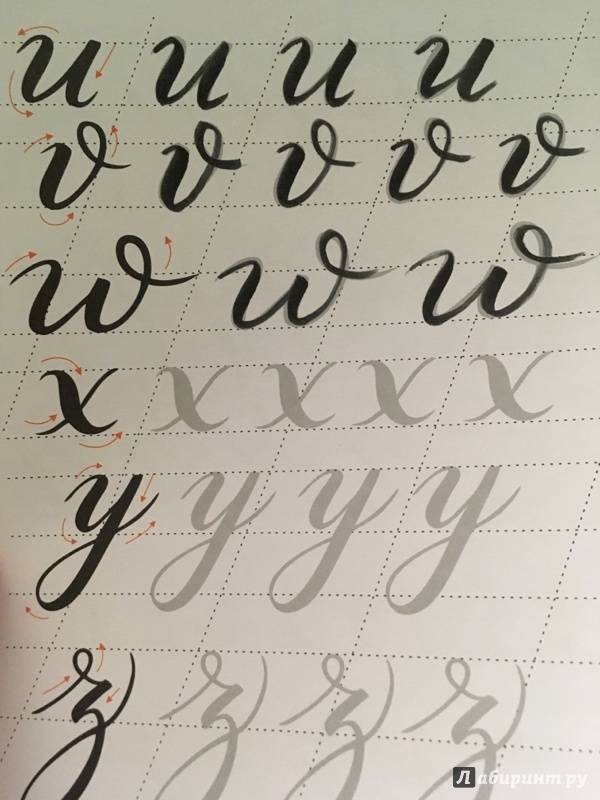 u u u u
v v v v v
w w w
x x x x x
y y y y
z z z z
Лабиринт.ру